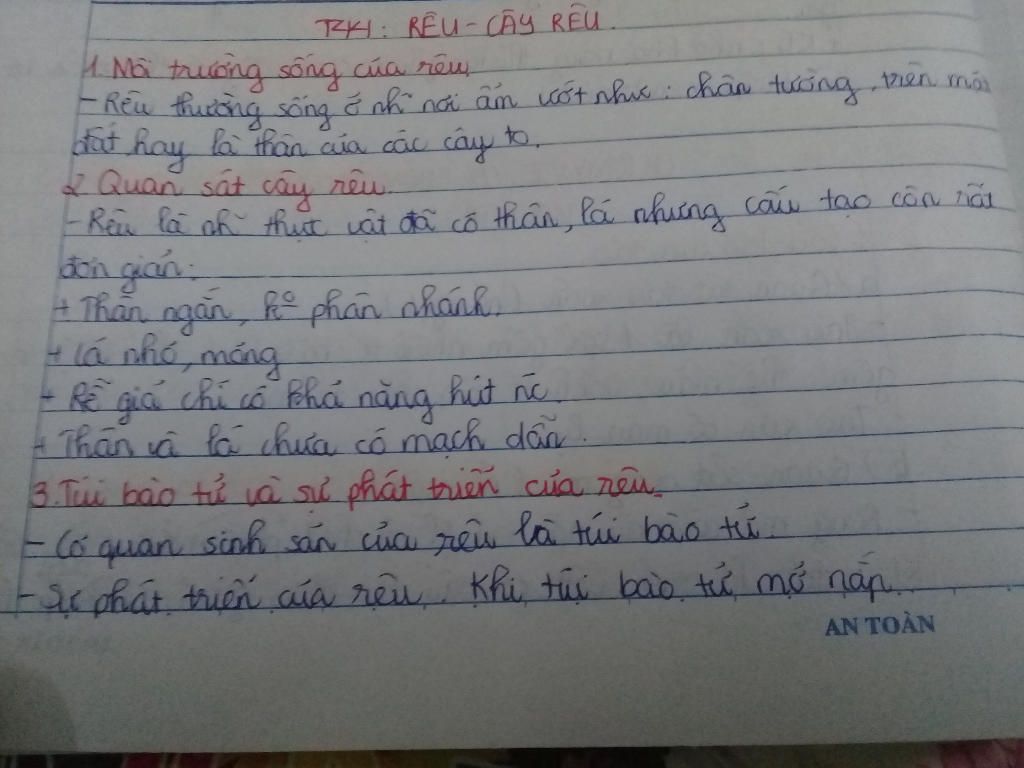 T41: RÊU - CÂY RÊU.
1. Môi trường sống của rêu
- Rêu thường sống ở nh~ nơi ẩm ướt như: chân tường, trên mặt
đất hay là thân của các cây to.
2. Quan sát cây rêu.
- Rêu là nh~ thực vật đã có thân, lá nhưng cấu tạo còn rất
đơn giản:
+ Thân ngắn, ko phân nhánh.
+ Lá nhỏ, mỏng
+ Rễ giả chỉ có khả năng hút nc.
+ Thân và lá chưa có mạch dẫn.
3. Túi bào tử và sự phát triển của rêu.
- Cơ quan sinh sản của rêu là túi bào tử.
- Sự phát triển của rêu. Khi túi bào tử mở nắp
AN TOÀN